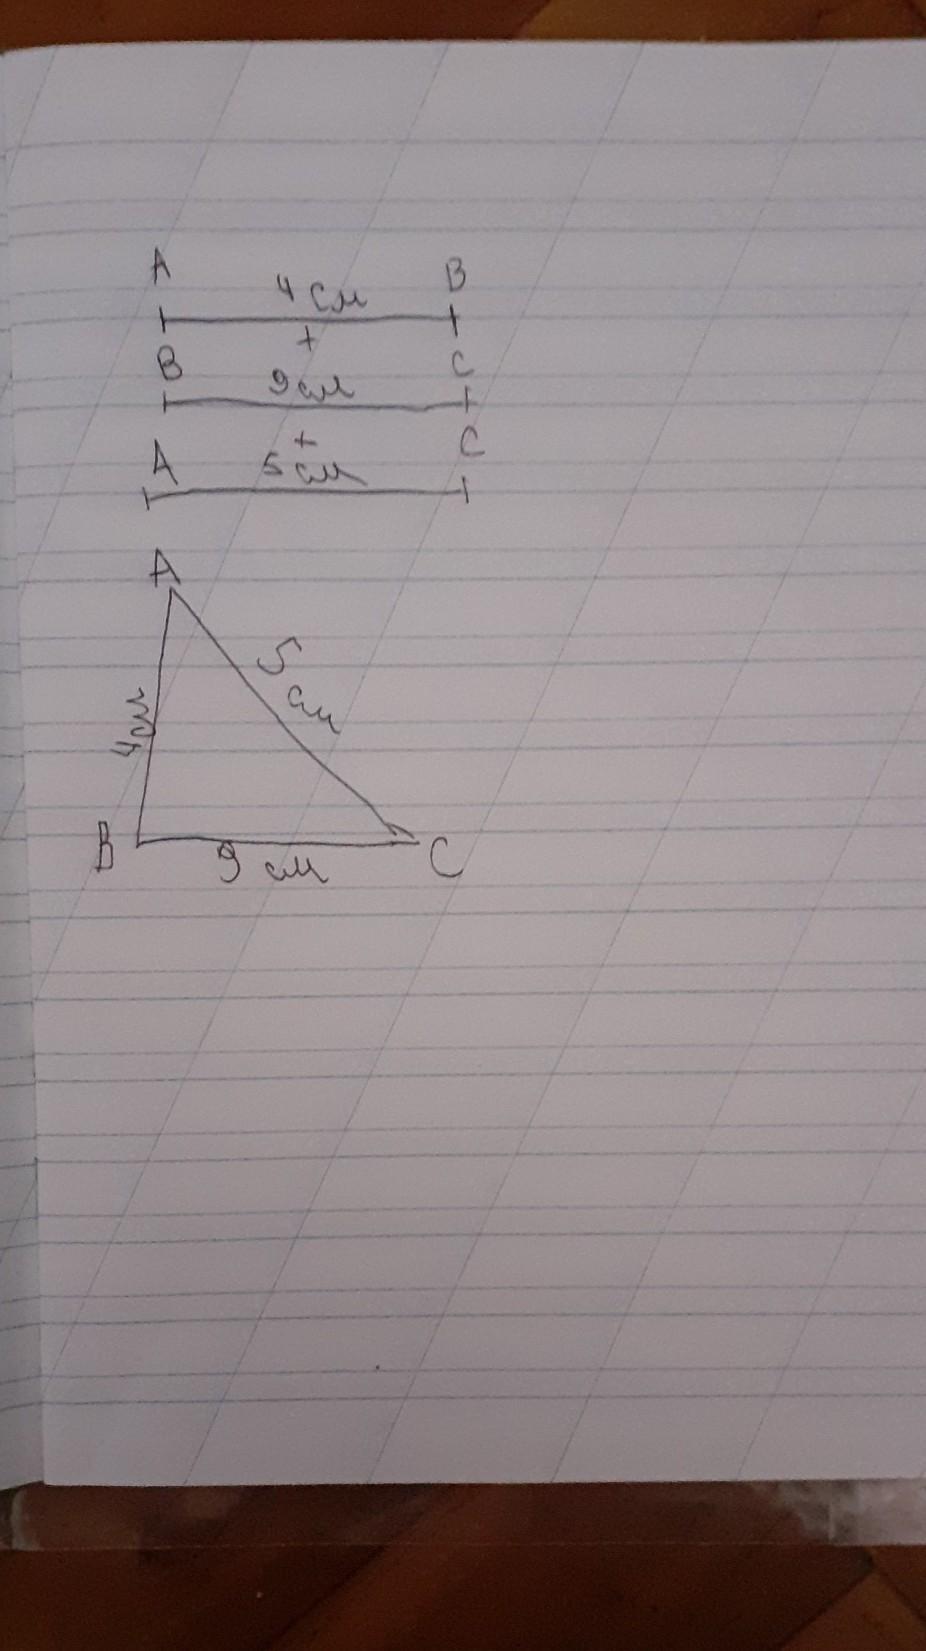 A 4 см B
+
B 9 см C
+
A 5 см C
A
5 см
4 см
B 9 см C